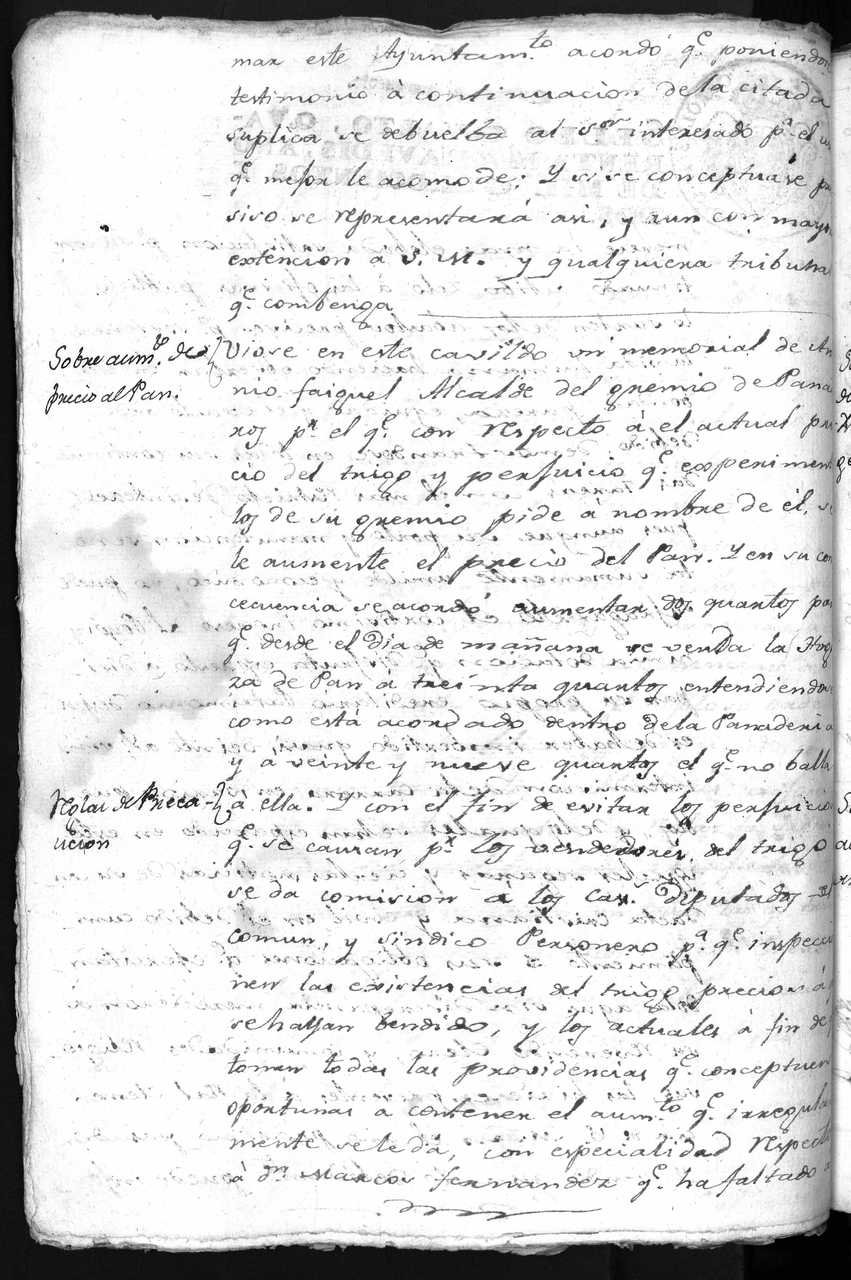 mar este Ayuntam.to acordó q.e poniendo
testimonio à continuacion de la citada
suplica se debuelba al S.or interesado p.a el
q.e mejor le acomode: Y si se conceptuase
siso se representará asi, y aun con mayo
extencion a S. M. y qualquiera tribuna
q.e combenga
Sobre aum.to de
precio al Pan.
Viose en este cavildo un memorial de An
nio faiguel Alcalde del gremio de Pana
ros p.r el q.e con respecto á el actual pre
cio del trigo y perjuicio q.e experiment
los de su gremio pide á nombre de él, se
le aumente el precio del Pan. Y en su con
cecuencia se acordó aumentar dos quartos pa
q.e desde el dia de mañana se venda la Hog
za de Pan á treinta quartos entendiendo
como está acordado dentro de la Panaderia
y a veinte y nueve quartos el q.e no balla
Reglas de Preca
ucion
á ella. Y con el fin de evitar los perjuicio
q.e se causan p.r los vendedores del trigo
se da comision a los Cav.s Diputados del
comun, y sindico Personero p.a q.e inspecci
nen las existencias del trigo, precios á
se hayan bendido, y los actuales à fin de
tomar todas las providencias q.e conceptuen
oportunas a contener el aum.to q.e irregular
mente se le dá, con especialidad respecto
à d.n Marcos fernandez q.e ha faltado